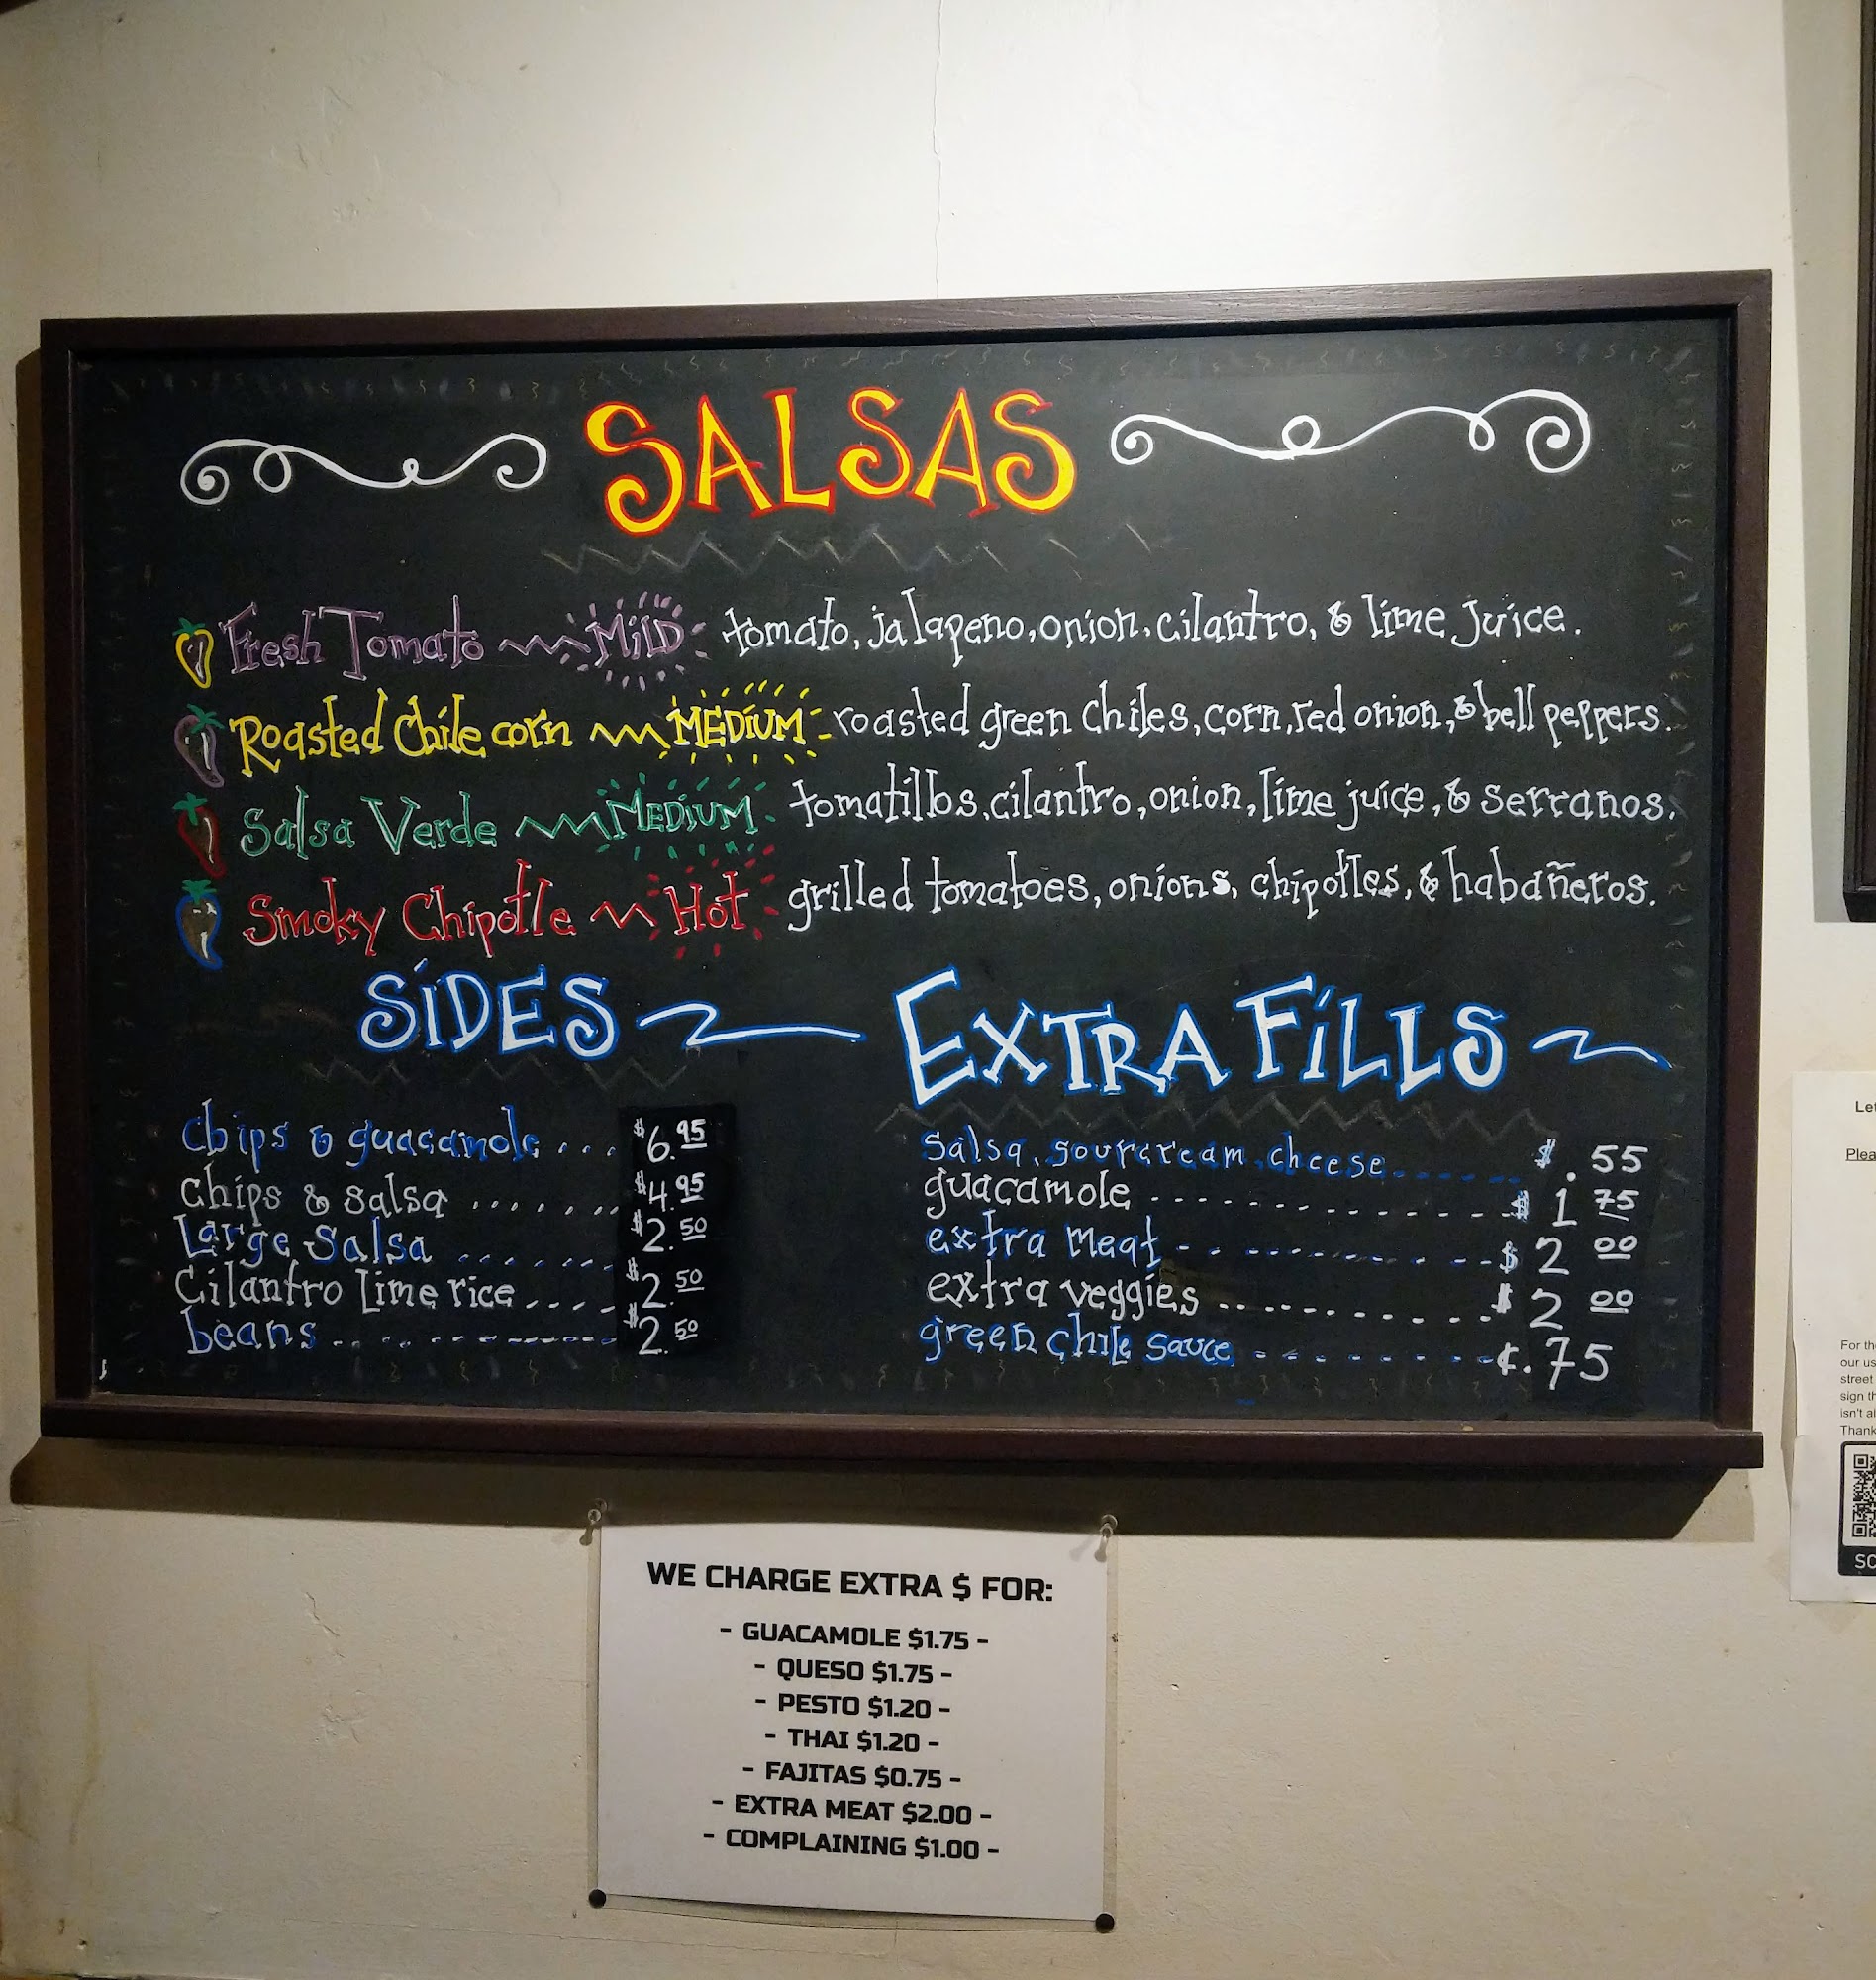 SALSAS
Fresh Tomato MiLD tomato, jalapeno, onion, cilantro, & lime juice.
Roasted Chile corn MEDIUM roasted green chiles, corn, red onion, & bell peppers.
Salsa Verde MEDIUM tomatillos, cilantro, onion, lime juice, & serranos.
Smoky Chipotle Hot grilled tomatoes, onions, chipotles, & habañeros.
SiDES
chips & guacamole ... $6.95
chips & salsa ....... $4.95
Large Salsa ....... $2.50
Cilantro Lime rice .... $2.50
beans .......... $2.50
EXTRA FiLLS
Salsa, sour cream, cheese ...... $.55
guacamole ............. $1 75
extra meat ............ $2 00
extra veggies ........... $2 00
green chile sauce ......... ¢.75
WE CHARGE EXTRA $ FOR:
- GUACAMOLE $1.75 -
- QUESO $1.75 -
- PESTO $1.20 -
- THAI $1.20 -
- FAJITAS $0.75 -
- EXTRA MEAT $2.00 -
- COMPLAINING $1.00 -
For the
our us
street
sign th
isn't al
Thank
SC